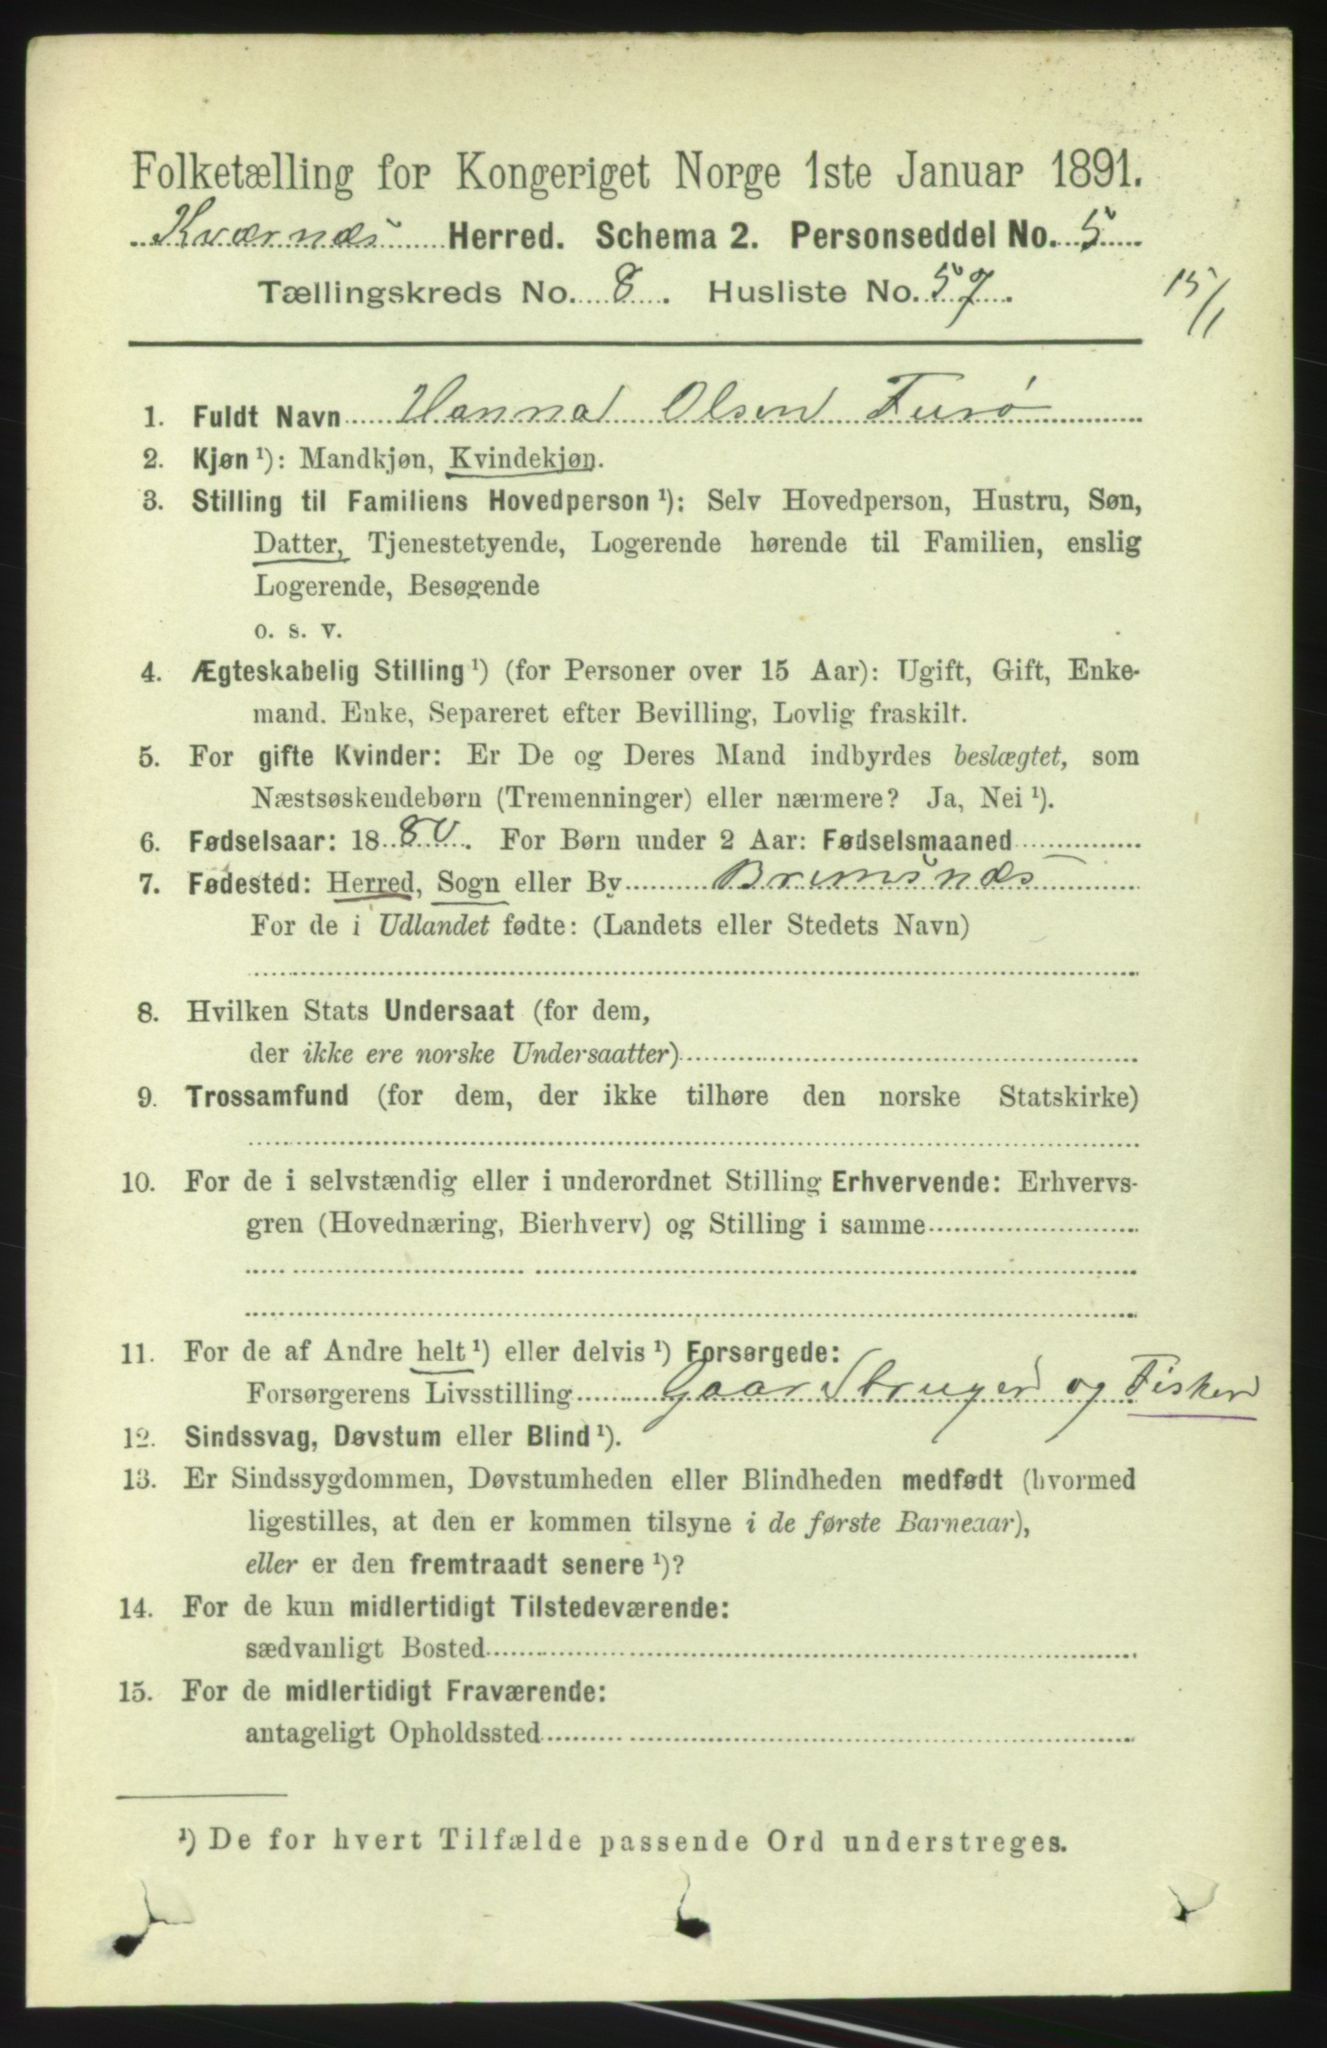 Folketælling for Kongeriget Norge 1ste Januar 1891.
Kværnæs Herred. Schema 2. Personseddel No. 5
Tællingskreds No. 8. Husliste No. 57.
15/1
1. Fuldt Navn Hanna Olsen Fusø
2. Kjøn ¹): Mandkjøn, Kvindekjøn.
3. Stilling til Familiens Hovedperson ¹): Selv Hovedperson, Hustru, Søn,
Datter, Tjenestetyende, Logerende hørende til Familien, enslig
Logerende, Besøgende
o. s. v.
4. Ægteskabelig Stilling ¹) (for Personer over 15 Aar): Ugift, Gift, Enke-
mand. Enke, Separeret efter Bevilling, Lovlig fraskilt.
5. For gifte Kvinder: Er De og Deres Mand indbyrdes beslægtet, som
Næstsøskendebørn (Tremenninger) eller nærmere? Ja, Nei ¹).
6. Fødselsaar: 1880. For Børn under 2 Aar: Fødselsmaaned
7. Fødested: Herred, Sogn eller By Bremsnæs
For de i Udlandet fødte: (Landets eller Stedets Navn)
8. Hvilken Stats Undersaat (for dem,
der ikke ere norske Undersaatter)
9. Trossamfund (for dem, der ikke tilhøre den norske Statskirke)
10. For de i selvstændig eller i underordnet Stilling Erhvervende: Erhvervs-
gren (Hovednæring, Bierhverv) og Stilling i samme
11. For de af Andre helt ¹) eller delvis ¹) Forsørgede:
Forsørgerens Livsstilling Gaardbruger og Fisker
12. Sindssvag, Døvstum eller Blind ¹).
13. Er Sindssygdommen, Døvstumheden eller Blindheden medfødt (hvormed
ligestilles, at den er kommen tilsyne i de første Barneaar),
eller er den fremtraadt senere ¹)?
14. For de kun midlertidigt Tilstedeværende:
sædvanligt Bosted
15. For de midlertidigt Fraværende:
antageligt Opholdssted
¹) De for hvert Tilfælde passende Ord understreges.